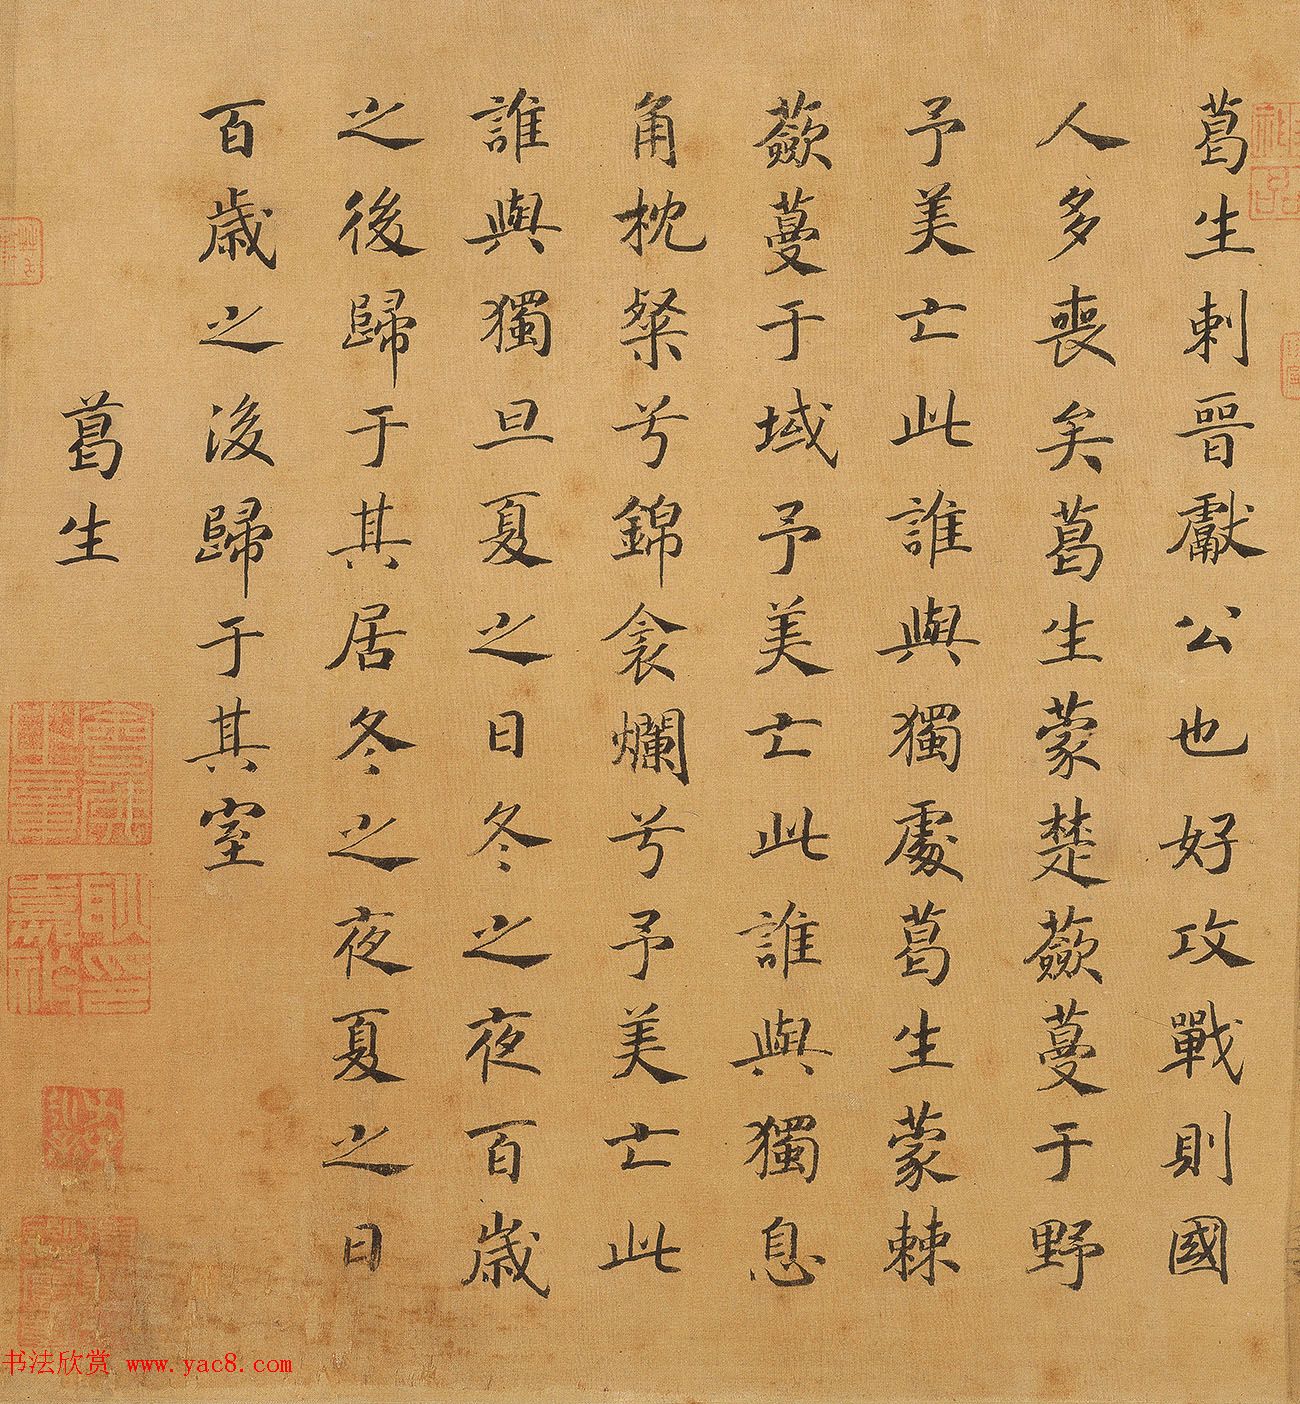 葛生刺晉獻公也好攻戰則國
人多喪矣葛生蒙楚蘞蔓于野
予美亡此誰與獨處葛生蒙棘
蘞蔓于域予美亡此誰與獨息
角枕粲兮錦衾爛兮予美亡此
誰與獨旦夏之日冬之夜百歲
之後歸于其居冬之夜夏之日
百歲之後歸于其室
葛生
神品
书法欣赏 www.yac8.com